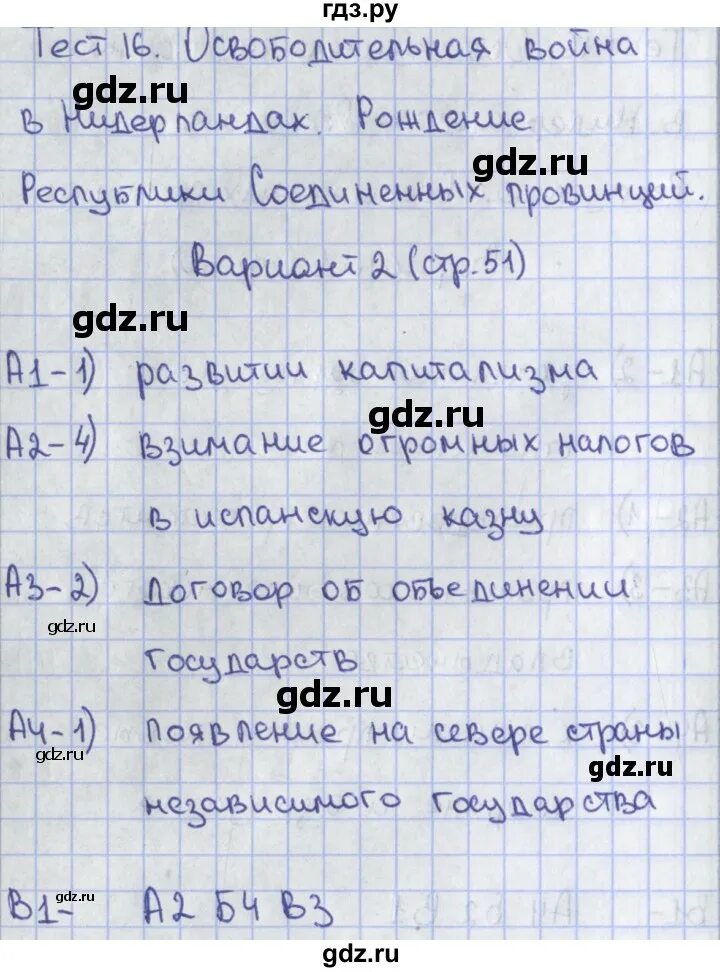 гдз.ру
Тест 16. Освободительная война
gdz.ru
в Нидерландах. Рождение
gdz.ru
Республики Соединенных провинций.
Вариант 2 (стр. 51)
gdz.ru
А1-1) развитии капитализма
gdz.ru
А2-4) взимание огромных налогов
в испанскую казну
А3-2) договор об объединении
gdz.ru
государств
gdz.ru
А4-1) появление на севере страны
gdz.ru
gdz.ru
независимого государства
gdz.ru
В1- А2 Б4 В3
gdz.ru